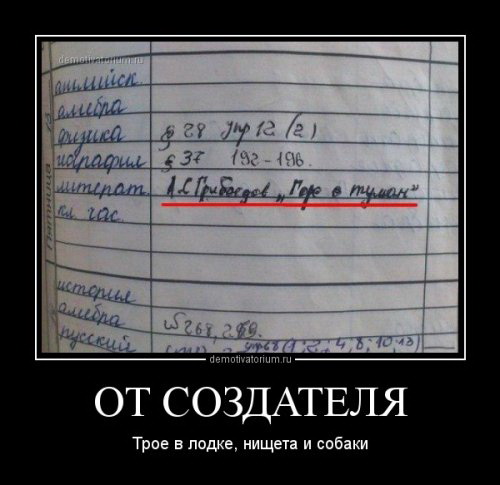 demotivatorium.ru
английск.
алгебра
физика § 28 упр 12 (2)
география § 37 192-196.
литерат. А.С Грибоедов „Горе о туман"
кл. час.
Пятница 13
история
алгебра № 268, 269.
русский
demotivatorium.ru
ОТ СОЗДАТЕЛЯ
Трое в лодке, нищета и собаки